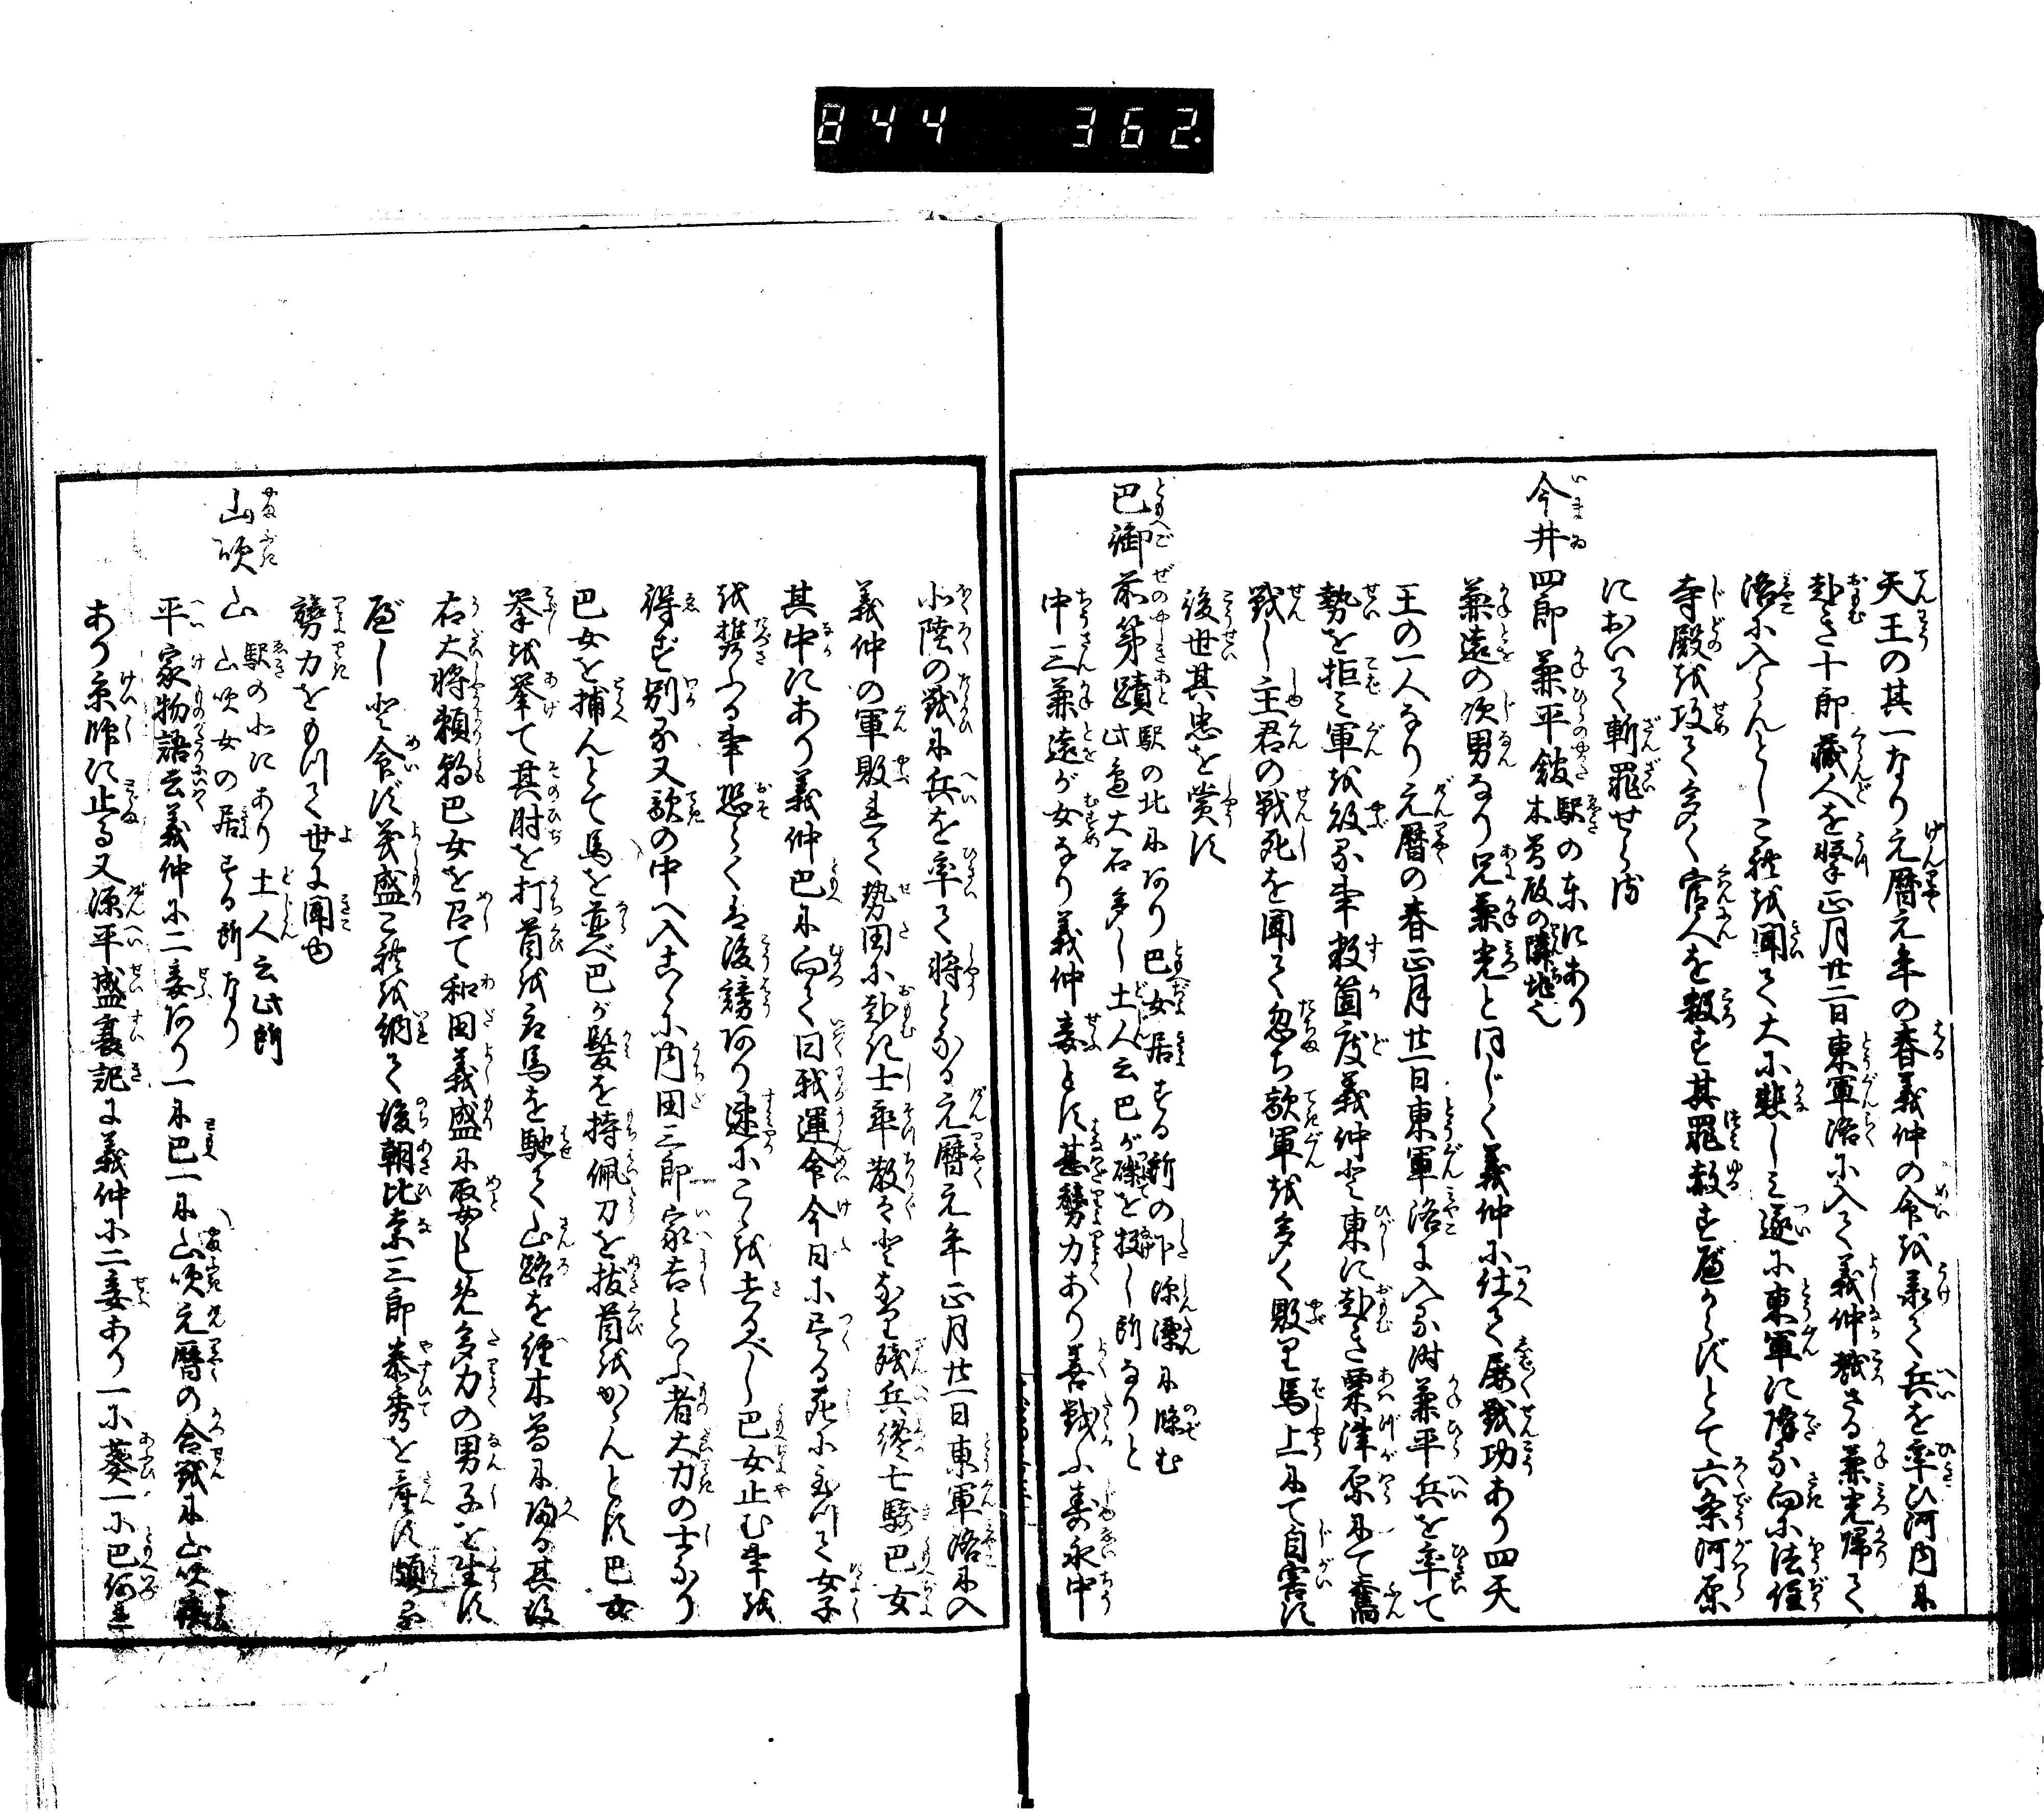 844 362.
天王の其一なり元暦元年の春義仲の命を承て兵を率ひ河内に
赴き十郎蔵人を撃正月廿二日東軍洛に入て義仲戮さる兼光帰て
洛に入らんとしこれを聞て大に悲しみ遂に東軍に降る向に法住
寺殿を攻て多く官人を殺す其罪赦すべからずとて六条河原
において斬罪せらる
今井四郎兼平館 駅の東にあり
木曽殿の隣地也
兼遠の次男なり兄兼光と同じく義仲に仕て屡戦功あり四天
王の一人なり元暦の春正月廿一日東軍洛に入る時兼平兵を率て
勢を拒ぎ軍を破る事数箇度義仲と東に赴き粟津原にて奮
戦し主君の戦死を聞て忽ち敵軍を多く敗り馬上にて自害す
後世其忠を賞す
巴御前第蹟 駅の北にあり巴女居する所の下深潭に臨む
此辺大石多し土人云巴が礫を投し所なりと
中三兼遠が女なり義仲妾とす甚膂力あり善戦ふ寿永中
北陸の戦に兵を率て将となる元暦元年正月廿一日東軍洛に入
義仲の軍敗れて勢田に赴く士卒散々となり残兵纔七騎巴女
其中にあり義仲巴に向て曰我運命今日に尽る死に至りて女子
を携ふる事恐らくは後謗あり速にこゝを去るべし巴女止む事を
得ず別る又敵の中へ入こゝに内田三郎家吉といふ者大力の士なり
巴女を捕んとて馬を並べ巴が髪を持佩刀を抜首をかゝんとす巴女
拳を挙て其肘を打首を取馬を馳て山路を経木曽に帰る其故
右大将頼朝巴女を召て和田義盛に取娶しめ多力の男子を生す
べしと命ず義盛これを納て後朝比奈三郎泰秀を産す頗る
膂力をもつて世に聞ゆ
山吹山 駅の北にあり土人云此所
山吹女の居する所なり
平家物語云義仲に二妾あり一に巴一に山吹元暦の合戦に山吹
あり京師に止る又源平盛衰記に義仲に二妾あり一に葵一に巴